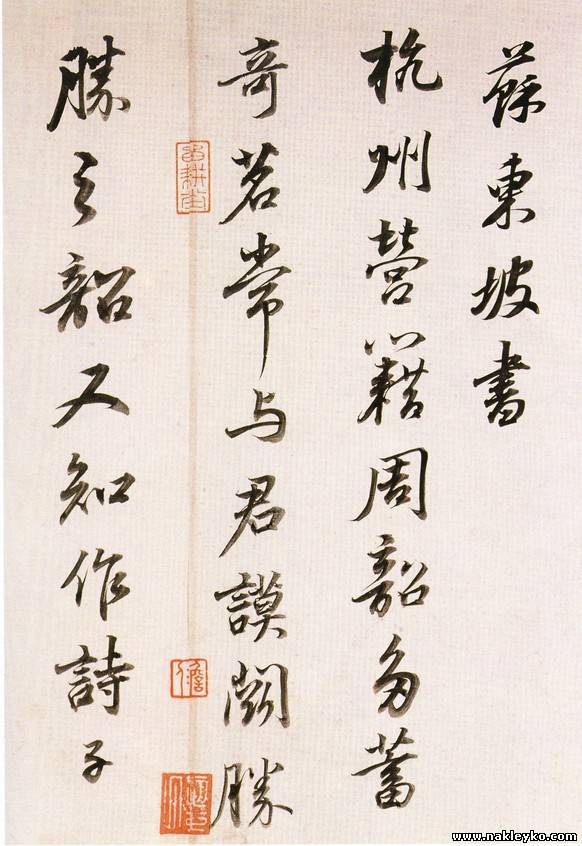 蘇東坡書
杭州營籍周韶多蓄
奇茗常与君謨鬭勝
勝之韶又知作詩子
www.nakleyko.com